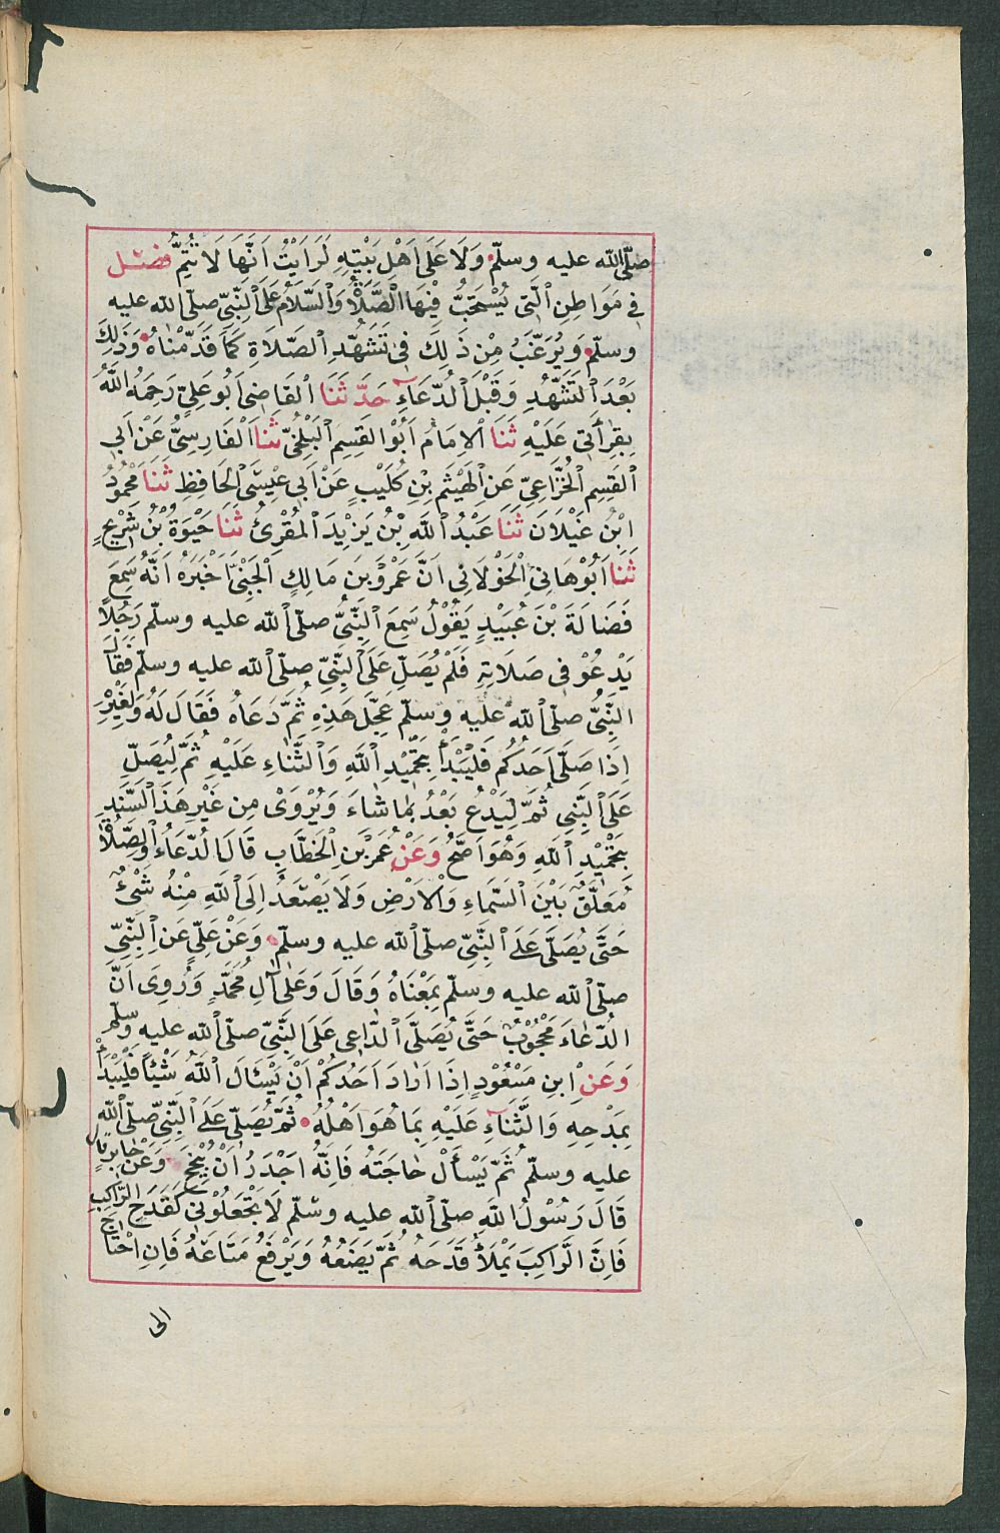 صلّى الله عليه وسلّم وَلَا عَلَى اَهْلِ بَيْتِهِ لَرَاَيْتُ اَنَّهَا لَا تَتِمُّ فصل
فِى مَوَاطِنِ الَّتِى يُسْتَحَبُّ فِيْهَا الصَّلٰوةُ وَالسَّلَامُ عَلَى النَّبِيِّ صلّى الله عليه
وسلّم وَيُرَغَّبُ مِنْ ذَلِكَ فِى تَشَهُّدِ الصَّلَاةِ كَمَا قَدَّمْنَاهُ وَذَلِكَ
بَعْدَ التَّشَهُّدِ وَقَبْلَ الدُّعَاءِ حَدَّثَنَا القَاضِى اَبُو عَلِيٍّ رَحِمَهُ اللّٰهُ
بِقِرَاءَتِى عَلَيْهِ ثَنَا الْاِمَامُ اَبُو القَسِمِ البَلْخِيُّ ثَنَا الْفَارِسِيُّ عَنْ اَبِى
القَسِمِ الْخُزَاعِيِّ عَنِ الْهَيْثَمِ بْنِ كُلَيْبٍ عَنْ اَبِى عِيْسَى الْحَافِظِ ثَنَا مَحْمُودُ
ابْنُ غَيْلَانَ ثَنَا عَبْدُ اللّٰهِ بْنُ يَزِيْدَ الْمُقْرِئُ ثَنَا حَيْوَةُ بْنُ شُرَيْحٍ
ثَنَا اَبُوْ هَانِئٍ الْخَوْلَانِى اَنَّ عَمْرَو بْنَ مَالِكٍ الْجَنْبِىَّ اَخْبَرَهُ اَنَّهُ سَمِعَ
فَضَالَةَ بْنَ عُبَيْدٍ يَقُوْلُ سَمِعَ النَّبِيُّ صلّى الله عليه وسلّم رَجُلًا
يَدْعُوْ فِى صَلَاتِهِ فَلَمْ يُصَلِّ عَلَى النَّبِيِّ صلّى الله عليه وسلّم فَقَالَ
النَّبِيُّ صلّى الله عليه وسلّم عَجِلَ هَذِهِ ثُمَّ دَعَاهُ فَقَالَ لَهُ وَلِغَيْرِهِ
اِذَا صَلَّى اَحَدُكُمْ فَلْيَبْدَأْ بِتَحْمِيْدِ اللّٰهِ وَالثَّنَاءِ عَلَيْهِ ثُمَّ لِيُصَلِّ
عَلَى النَّبِيِّ ثُمَّ لِيَدْعُ بَعْدُ بِمَا شَاءَ وَيُرْوَىٰ مِن غَيْرِ هَذَا السَّنَدِ
بِتَمْجِيْدِ اللّٰهِ وَهُوَ اَصَحُّ وَعَنْ عُمَرَ بْنِ الْخَطَّابِ قَالَ الدُّعَاءُ وَالصَّلٰوةُ
مُعَلَّقٌ بَيْنَ السَّمَاءِ وَالْاَرْضِ وَلَا يَصْعَدُ اِلَى اللّٰهِ مِنْهُ شَئٌ
حَتَّى يُصَلَّى عَلَى النَّبِيِّ صلّى الله عليه وسلّم وَعَنْ عَلِيٍّ عَنِ النَّبِيِّ
صلّى الله عليه وسلّم بِمَعْنَاهُ وَقَالَ وَعَلٰى آلِ مُحَمَّدٍ وَرُوِىَ اَنَّ
الدُّعَاءَ مَحْجُوْبٌ حَتَّى يُصَلِّىَ الدَّاعِى عَلَى النَّبِيِّ صلّى الله عليه وسلّم
وَعَنِ ابنِ مَسْعُودٍ اِذَا اَرَادَ اَحَدُكُمْ اَنْ يَسْئَالَ اللّٰهَ شَئًْا فَلْيَبْدَأْ
بِمَدْحِهِ وَالثَّنَاءِ عَلَيْهِ بِمَا هُوَ اَهْلُهُ ثُمَّ يُصَلِّى عَلَى النَّبِيِّ صلّى الله
عليه وسلّم ثُمَّ يَسْأَلُ حَاجَتَهُ فَاِنَّهُ اَجْدَرُ اَنْ يُنْجِحَ وَعَنْ جَابِرٍ قال
قَالَ رَسُوْلُ اللّٰهِ صلّى الله عليه وسلّم لَا تَجْعَلُوْنِى كَقَدَحِ الرَّاكِبِ
فَاِنَّ الرَّاكِبَ يَمْلَأُ قَدَحَهُ ثُمَّ يَضَعُهُ وَيَرْفَعُ مَتَاعَهُ فَاِنِ احْتَاجَ
الى